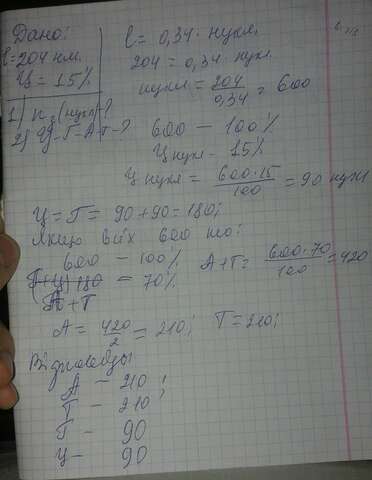 Дано:
l = 0,34 · нукл.
l = 204 нм.
204 = 0,34 · нукл.
Ц = 15%
нукл = 204/0,34 = 600
1) n (нукл) - ?
2) Ц-Г-А-Т-?
600 – 100%
Ц нукл - 15%
Ц нукл = 600·15/100 = 90 нукл
Ц = Г = 90 + 90 = 180;
Якщо всіх 600 то:
600 – 100%
А+Т = 600·70/100 = 420
(Г+Ц) 180 = 70%
А+Т
А = 420/2 = 210; Т = 210;
Відповідь
А – 210;
Т – 210
Г – 90
Ц – 90